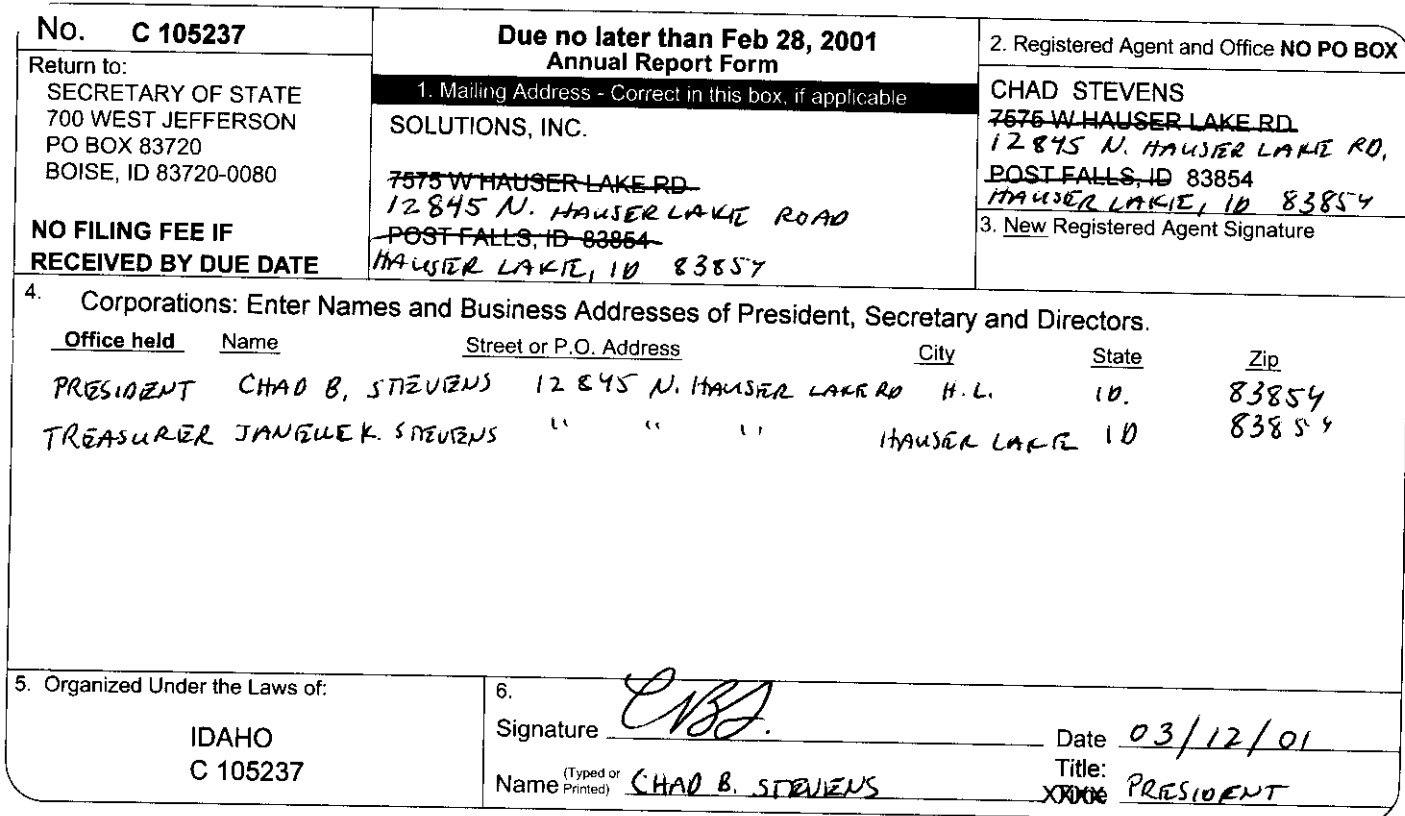 No. C 105237
Return to:
SECRETARY OF STATE
700 WEST JEFFERSON
PO BOX 83720
BOISE, ID 83720-0080
NO FILING FEE IF
RECEIVED BY DUE DATE
Due no later than Feb 28, 2001
Annual Report Form
1. Mailing Address - Correct in this box, if applicable
SOLUTIONS, INC.
7575 W HAUSER LAKE RD
12845 N. HAUSER LAKE ROAD
POST FALLS, ID 83854
HAUSER LAKE, ID 83854
2. Registered Agent and Office NO PO BOX
CHAD STEVENS
7575 W HAUSER LAKE RD
12845 N. HAUSER LAKE RD,
POST FALLS, ID 83854
HAUSER LAKE, ID 83854
3. New Registered Agent Signature
4. Corporations: Enter Names and Business Addresses of President, Secretary and Directors.
Office held Name Street or P.O. Address City State Zip
PRESIDENT CHAD B. STEVENS 12845 N. HAUSER LAKE RD H.L. ID. 83854
TREASURER JANELLE K. STEVENS " " " HAUSER LAKE ID 83854
5. Organized Under the Laws of:
IDAHO
C 105237
6.
Signature CBS.
Date 03/12/01
Name (Typed or Printed) CHAD B. STEVENS
Title: PRESIDENT